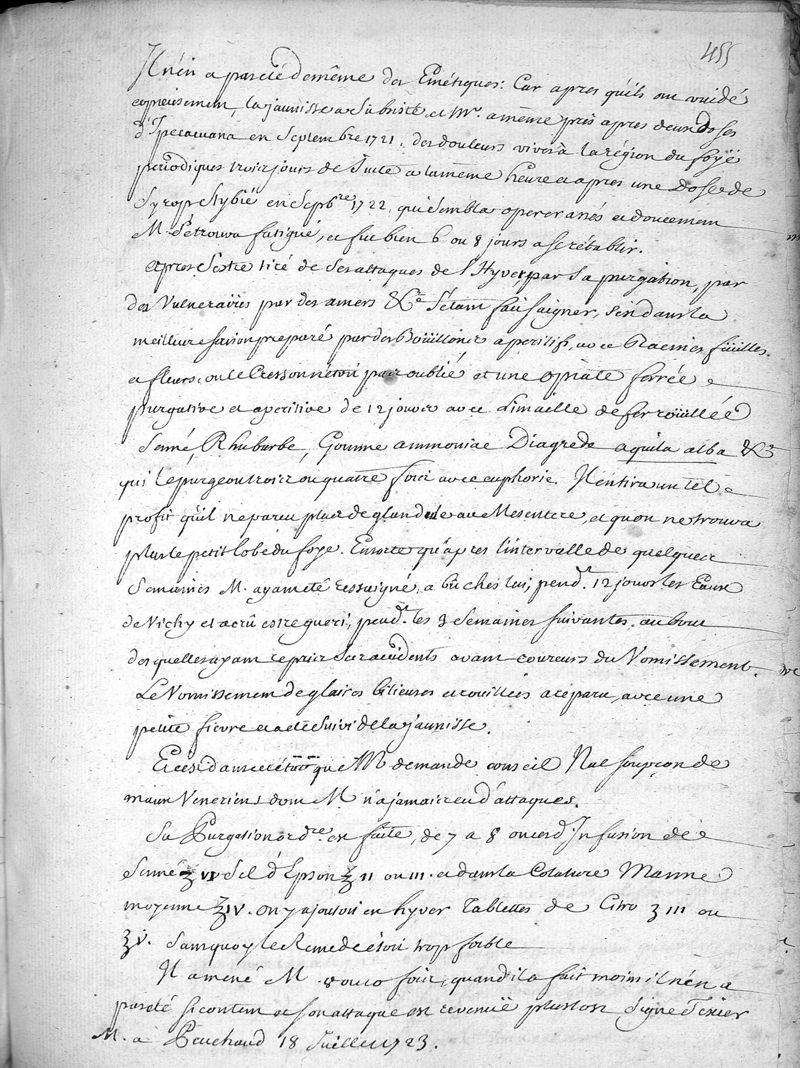 455
Il n'en a pas eté de même des Emétiques: Car apres qu'ils ont vuidé
copieusement, la jaunisse a subsisté, et Mr. a même pris apres deux doses
d'Ipecacuana en Septembre 1721. des douleurs vives à la région du foÿe
periodiques trois jours de suite a la même heure et apres une Dose de
Syrop Slybié en Sepbre 1722. qui sembla operer aisé et doucement
M. se trouva fatigué, et fut bien 6 ou 8 jours a se rétablir.
Apres s'estre tiré de ses attaques de l'Hyver, par sa purgation, par
des Vulneraires par des amers &c s'étant fait saigner, s'est dans la
meilleure saison preparé par des Boüillons aperitifs, avec Racines feüilles
et fleurs, ou le Cresson n'étoit pas oublié et une opiate ferrée
purgative et aperitive de 12 jours avec Limaille de fer roüillée
Senné, Rhubarbe, Gomme ammoniac Diagrede aquila alba &c
qui le purgeoit trois ou quatre fois avec euphorie. Il en tira un tel
profit qu'il ne parut plus de glandule au Mesentere, et qu'on ne trouva
plus le petit lobe du foye. Ensorte qu'apres l'intervalle de quelques
Semaines M. ayant eté ressaigné, a bû chés lui, pendt. 12 jours les Eaux
de Vichy et a crû estre gueri, pendt. les 3 Semaines suivantes. au bout
des quelles ayant repris ses accidents avant coureurs du Vomissement.
Le Vomissement de glaires bilieuses et roüillées a reparu, avec une
petite fievre et a eté suivi de la jaunisse.
Et c'est dans cet état que M demande conseil Nul soupçon de
maux Veneriens dont M n'a jamais eu d'attaques.
Sa Purgation ordre. est faite, de 7 a 8 onces d'Infusion de
Senné ʒ VI Sel d'Epson ʒ II ou III. et dans la Colature Manne
moyenne ʒ IV. on y ajoutoit en hyver Tablettes de Citro ʒ III ou
ʒ V. sans quoy le Remede étoit trop foible
Il a mené M. 8 ou 10 fois, quand il a fait moins il n'en a
pas eté si content et son attaque est revenuë plustost Signé Texier
M. a Peuchaud 18 Juillet 1723.